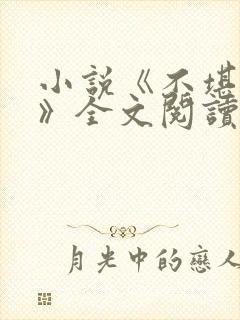 小說《不堪
》全文閱讀
月光中的戀人